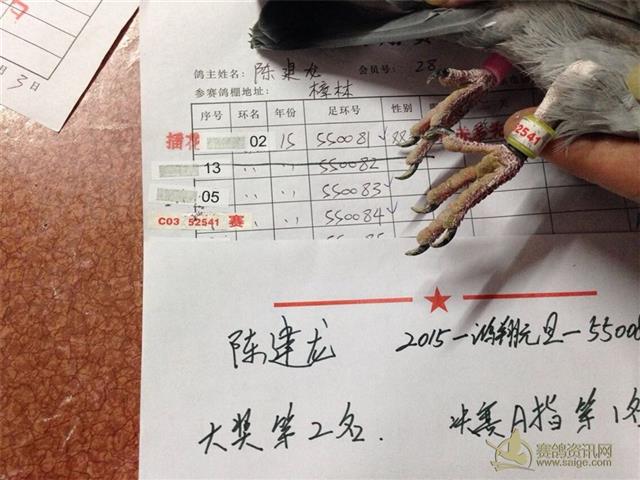 月 3 日
鸽主姓名: 陈建龙 会员号: 28
参赛鸽棚地址: 樟林
序号 环名 年份 足环号 性别
插花 02 15 550081
13 〃 〃 550082
05 〃 〃 550083
C03 52541 赛 〃 〃 550084
52541
陈建龙 2015-鸿翔元旦-55008
大奖第2名. 决赛A指第1名
赛鸽资讯网
www.saige.com